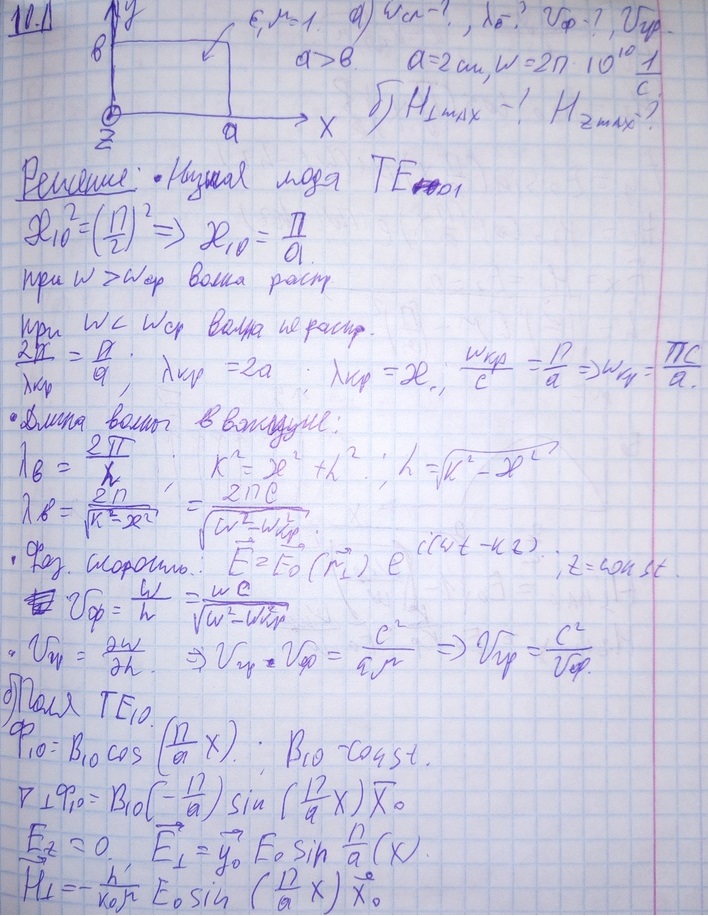 11.1 y ε, μ=1. а) ωкр-?, λв-? Vф-?, Vгр.
в a>в a=2см, ω=2π·10^10 1/с
z a x б) H⊥max-? Hzmax-?
Решение: • Низшая мода TE01
ϰ10² = (π/2)² => ϰ10 = π/a
при ω>ωкр волна распр
при ω<ωкр волна не распр.
2π/λкр = π/a; λкр = 2a; λкр = ϰ.; ωкр/c = π/a => ωкр = πc/a.
• Длина волны в
λв = 2π/h; K² = ϰ² + h².; h = √(K² - ϰ²)
λв = 2π/√(K²-ϰ²) = 2πc/√(ω²-ωкр²).
• Фаз. скорость: E⃗ = E⃗0(r⃗⊥) e^i(ωt-кz).; z=const
Vф = ω/h = ωc/√(ω²-ωкр²)
• Vгр = ∂ω/∂h. => Vгр·Vф = c²/εμ => Vгр = c²/Vф.
б) Поля TE10.
φ10 = B10 cos(π/a x).; B10-const.
∇⊥φ10 = B10(-π/a) sin(π/a x) x̄0
Ez = 0. E⃗⊥ = y⃗0 E0 sin π/a (x).
H⃗⊥ = -h/к0μ E0 sin (π/a x) x⃗0